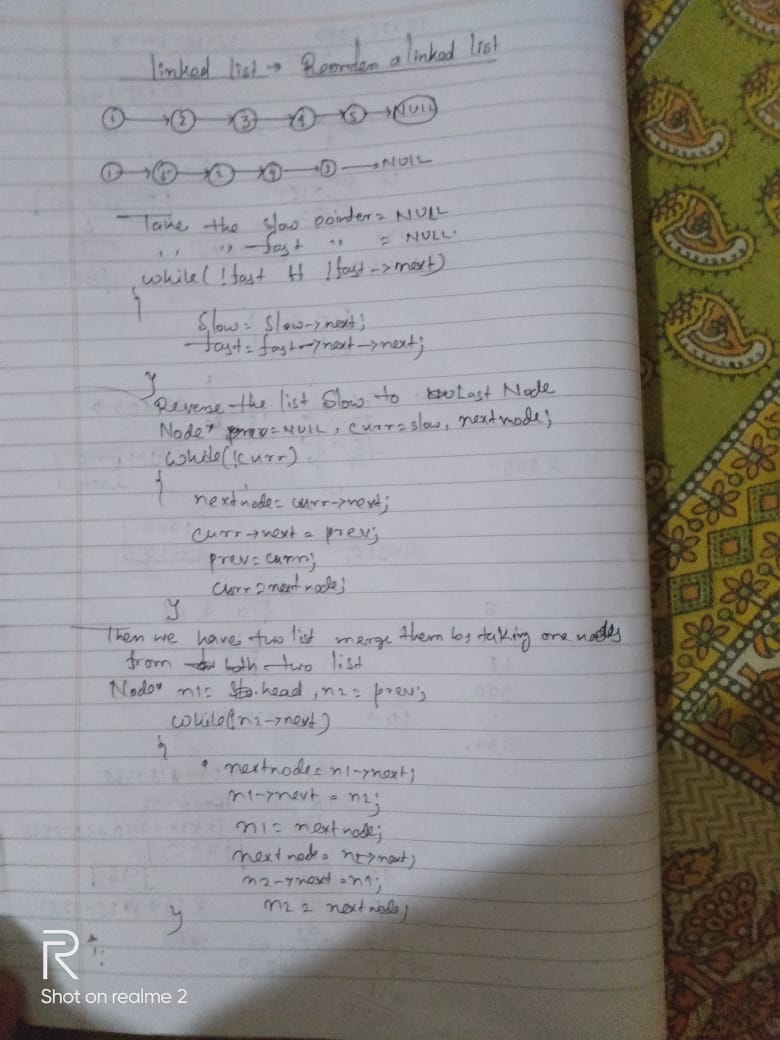 linked list → Reorder a linked list
1 → 2 → 3 → 4 → 5 → NULL
1 → 5 → 2 → 4 → 3 → NULL
Take the slow pointer = NULL
,, ,, fast ,, = NULL.
while( !fast && !fast->next)
{
slow = slow->next;
fast = fast->next->next;
}
Reverse the list slow to Last Node
Node* prev=NULL, curr=slow, nextnode;
while(!curr)
{
nextnode= curr->next;
curr->next = prev;
prev=curr;
curr=nextnode;
}
Then we have two list merge them by taking one nodes
from both two list
Node* n1= head, n2= prev;
while(n2->next)
{
nextnode= n1->next;
n1->next = n2;
n1= nextnode;
nextnode= n2->next;
n2->next=n1;
n2 = nextnode;
}
R
Shot on realme 2